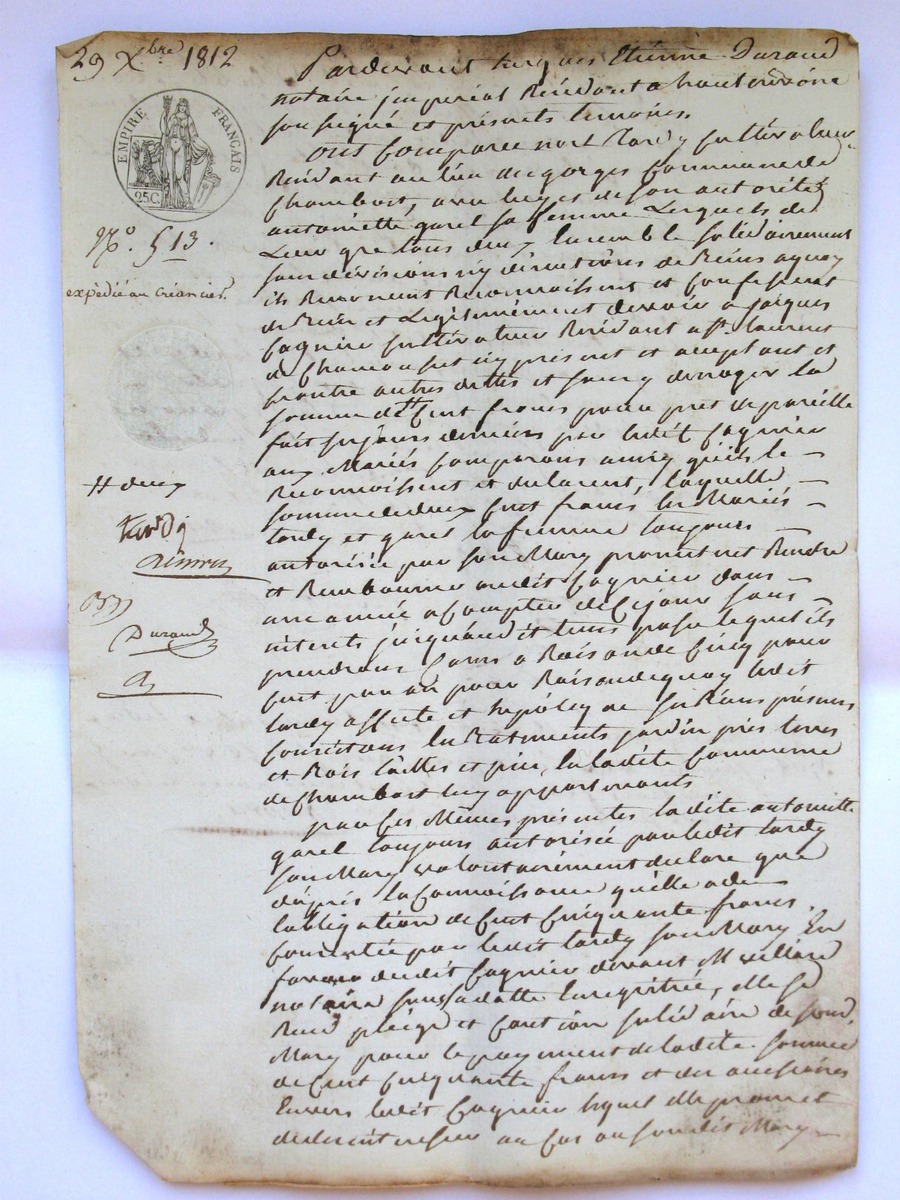 29 Xbre 1812
EMPIRE FRANÇAIS
25C.
No. 513.
expédié au créancier.
# deux
tardy
Durand
Pardevant Jacques Etienne Durand
notaire impérial Résidant a hauterivoire
soussigné et présents temoins.
ont comparu noel tardy cultivateur
Résidant au lieu des gorges commune de
Chambost, avec luy et de son autorité
antoinette garel sa femme Lesquels de
Leur gre tous deux ensemble solidairement
sans divisions ny discutions de Biens a quoy
ils Renoncent Reconnoissent et confessent
de Bien et Legitimement devoir a jacques
cultivateur Résidant a st. laurent
de Chamousset icy présent et aceptant et
contre autres dettes et sans y deroger la
somme de # Cent francs pour pret de pareille
fait ces jours derniers par ledit
aux Mariés comparans ainsy qu'ils le
Reconnoissent et declarent, laquelle
somme de deux Cent francs les Mariés
tardy et garel la femme toujours
autorisée par son Mary promettent Rendre
et Rembourser audit dans
une année a Compter de Ce jour sans
interets jusqu'audit tems passé lequel ils
prendront Cours a Raison de Cinq pour
cent par an pour Raison de quoy ledit
tardy affecte et hipoteque ses Biens présents
consistans en Batiments jardin près terres
et Bois sittes et près, la ladite Commune
de Chambost luy appartenants
par ces Mêmes présentes ladite antoinette
garel toujours autorisée par ledit tardy
son Mary volontairement declare que
d'après la Connoissance qu'elle a de
l'obligation de Cent Cinquante francs.
consentie par ledit tardy son Mary En
faveur dudit devant Me
notaire sous sa datte Enregistrée, elle se
Rend pleige et caution solidaire de sond.
Mary pour le payement de ladite somme
de Cent cinquante francs et des accessoires
Envers ledit lequel elle promet
de desinteresser au cas ou sondit Mary